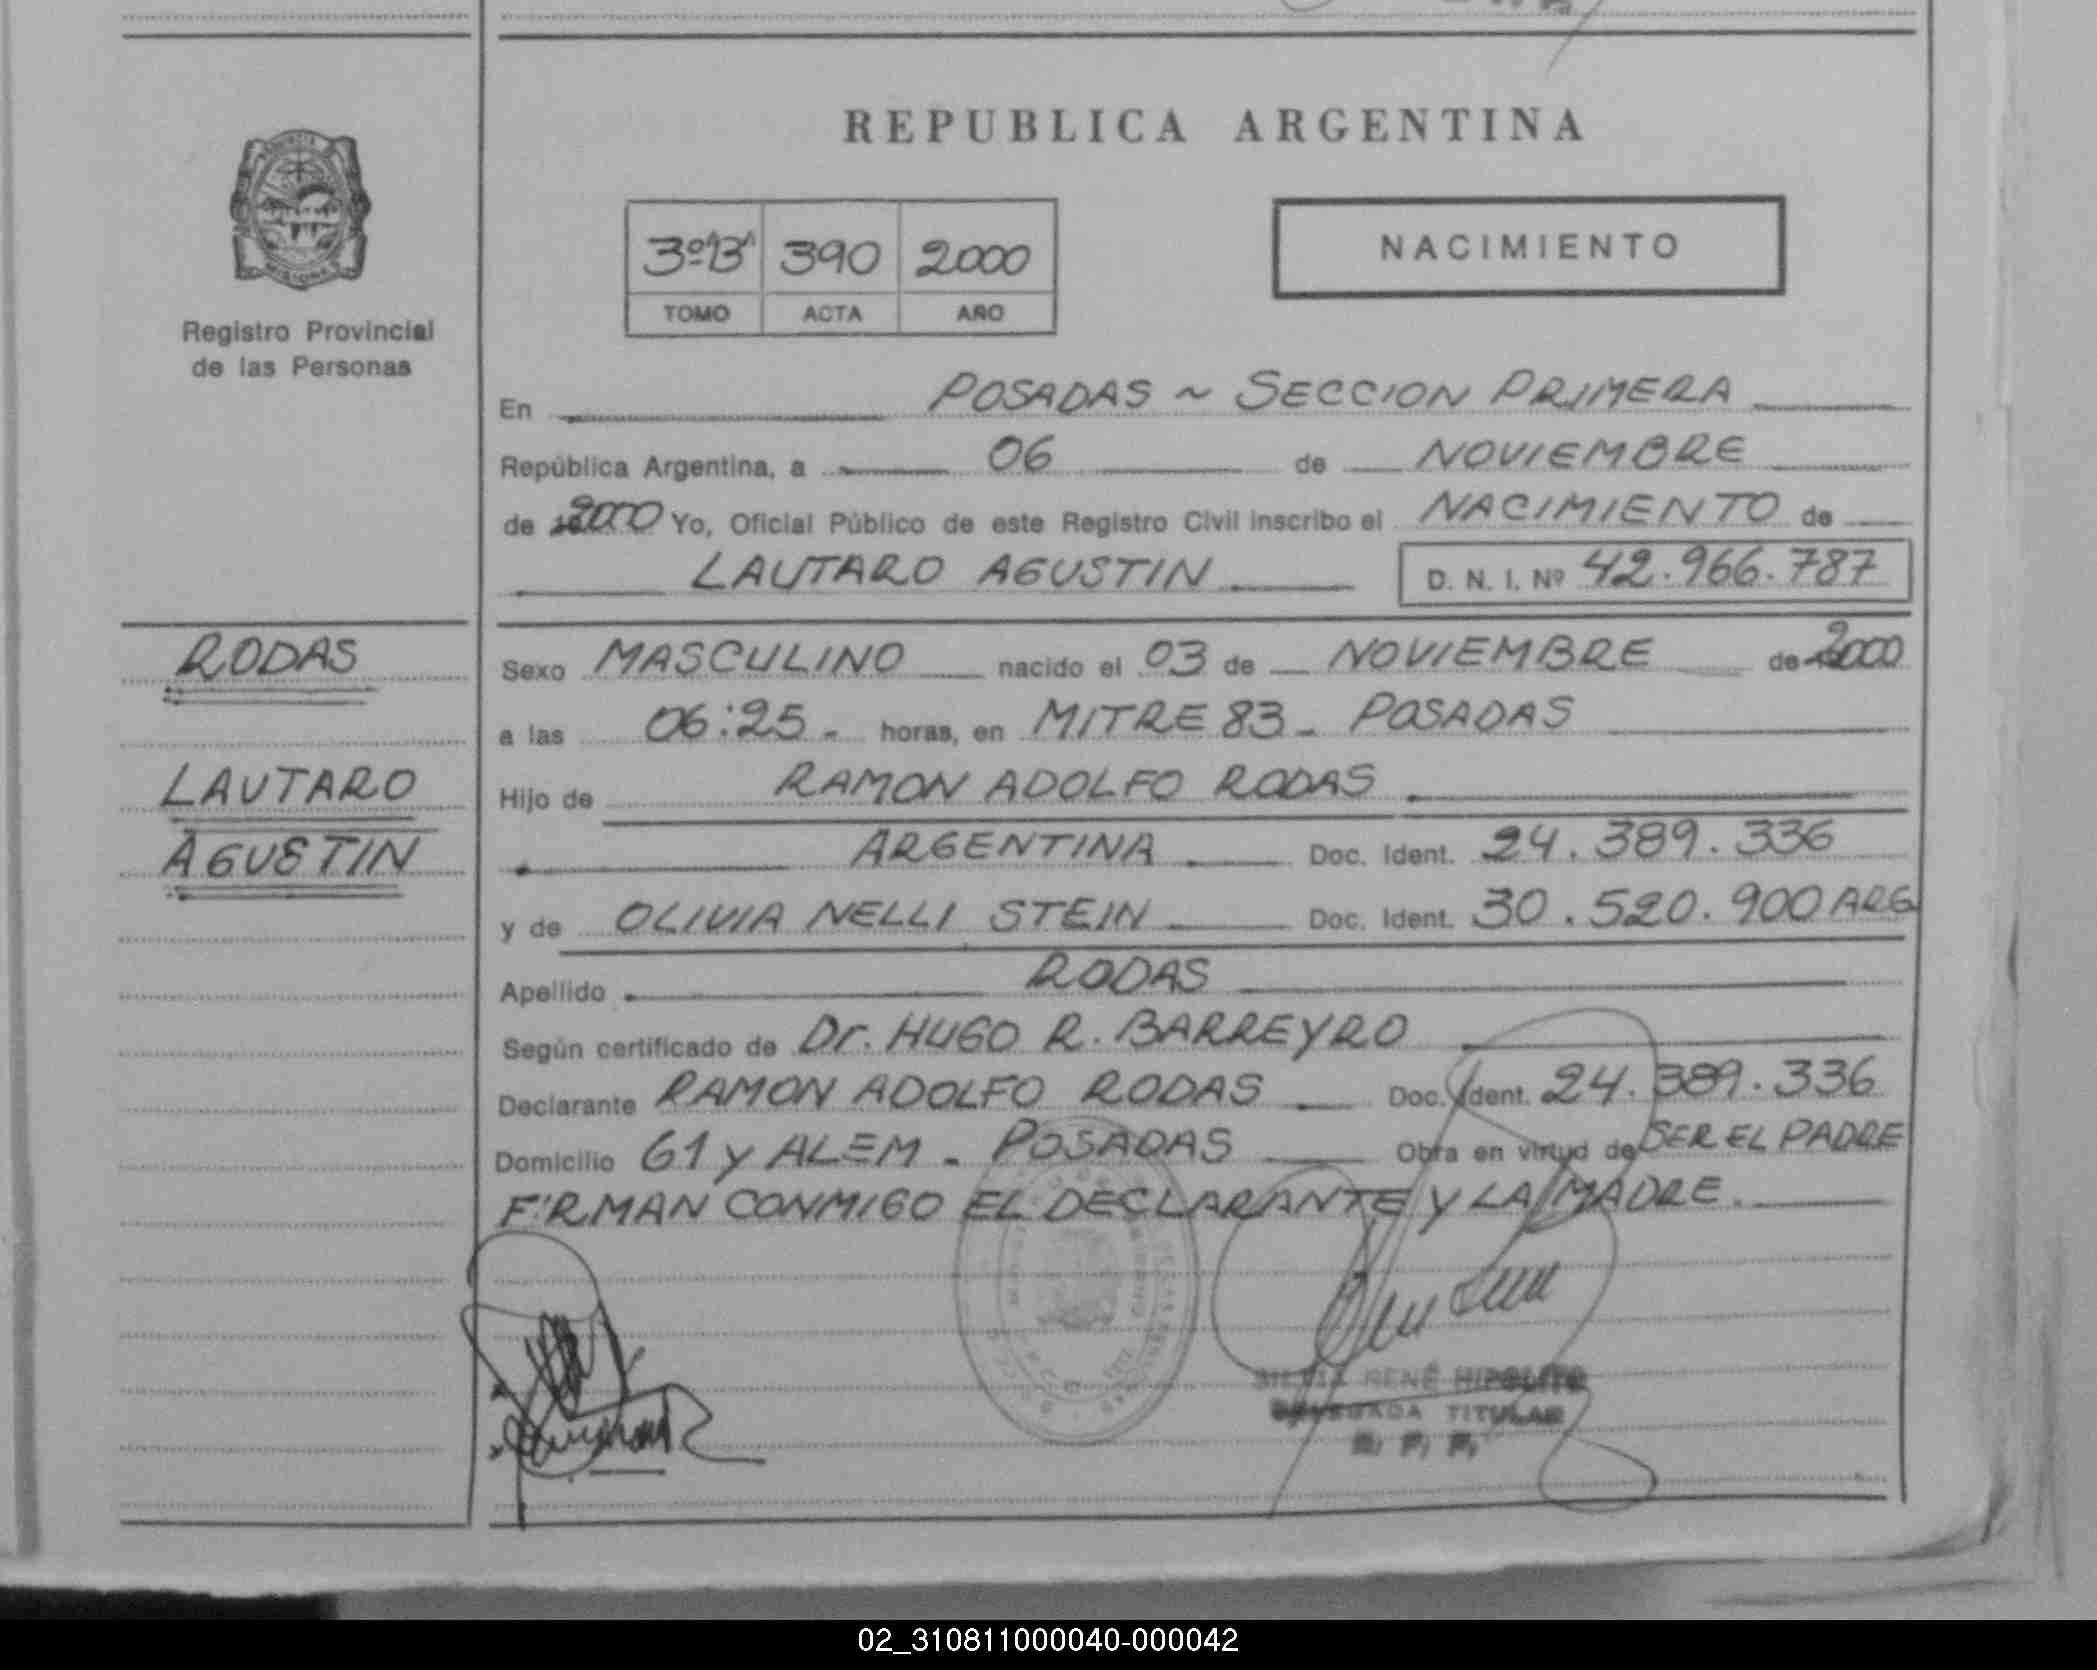 REPUBLICA ARGENTINA
3º "B" 390 2000
TOMO ACTA AÑO
NACIMIENTO
Registro Provincial
de las Personas
En POSADAS ~ SECCION PRIMERA
República Argentina, a 06 de NOVIEMBRE
de 2000 Yo, Oficial Público de este Registro Civil inscribo el NACIMIENTO de
LAUTARO AGUSTIN D. N. I. Nº 42.966.787
RODAS
LAUTARO
AGUSTIN
Sexo MASCULINO nacido el 03 de NOVIEMBRE de 2000
a las 06:25 - horas, en MITRE 83 - POSADAS
Hijo de RAMON ADOLFO RODAS
ARGENTINA Doc. Ident. 24.389.336
y de OLIVIA NELLI STEIN Doc. Ident. 30.520.900 ARG
Apellido RODAS
Según certificado de Dr. HUGO R. BARREYRO
Declarante RAMON ADOLFO RODAS Doc. Ident. 24.389.336
Domicilio 61 y ALEM - POSADAS Obra en virtud de SER EL PADRE
FIRMAN CONMIGO EL DECLARANTE Y LA MADRE.
SILVIA RENÉ HIPOLITO
DELEGADA TITULAR
R. P. P.
02_310811000040-000042